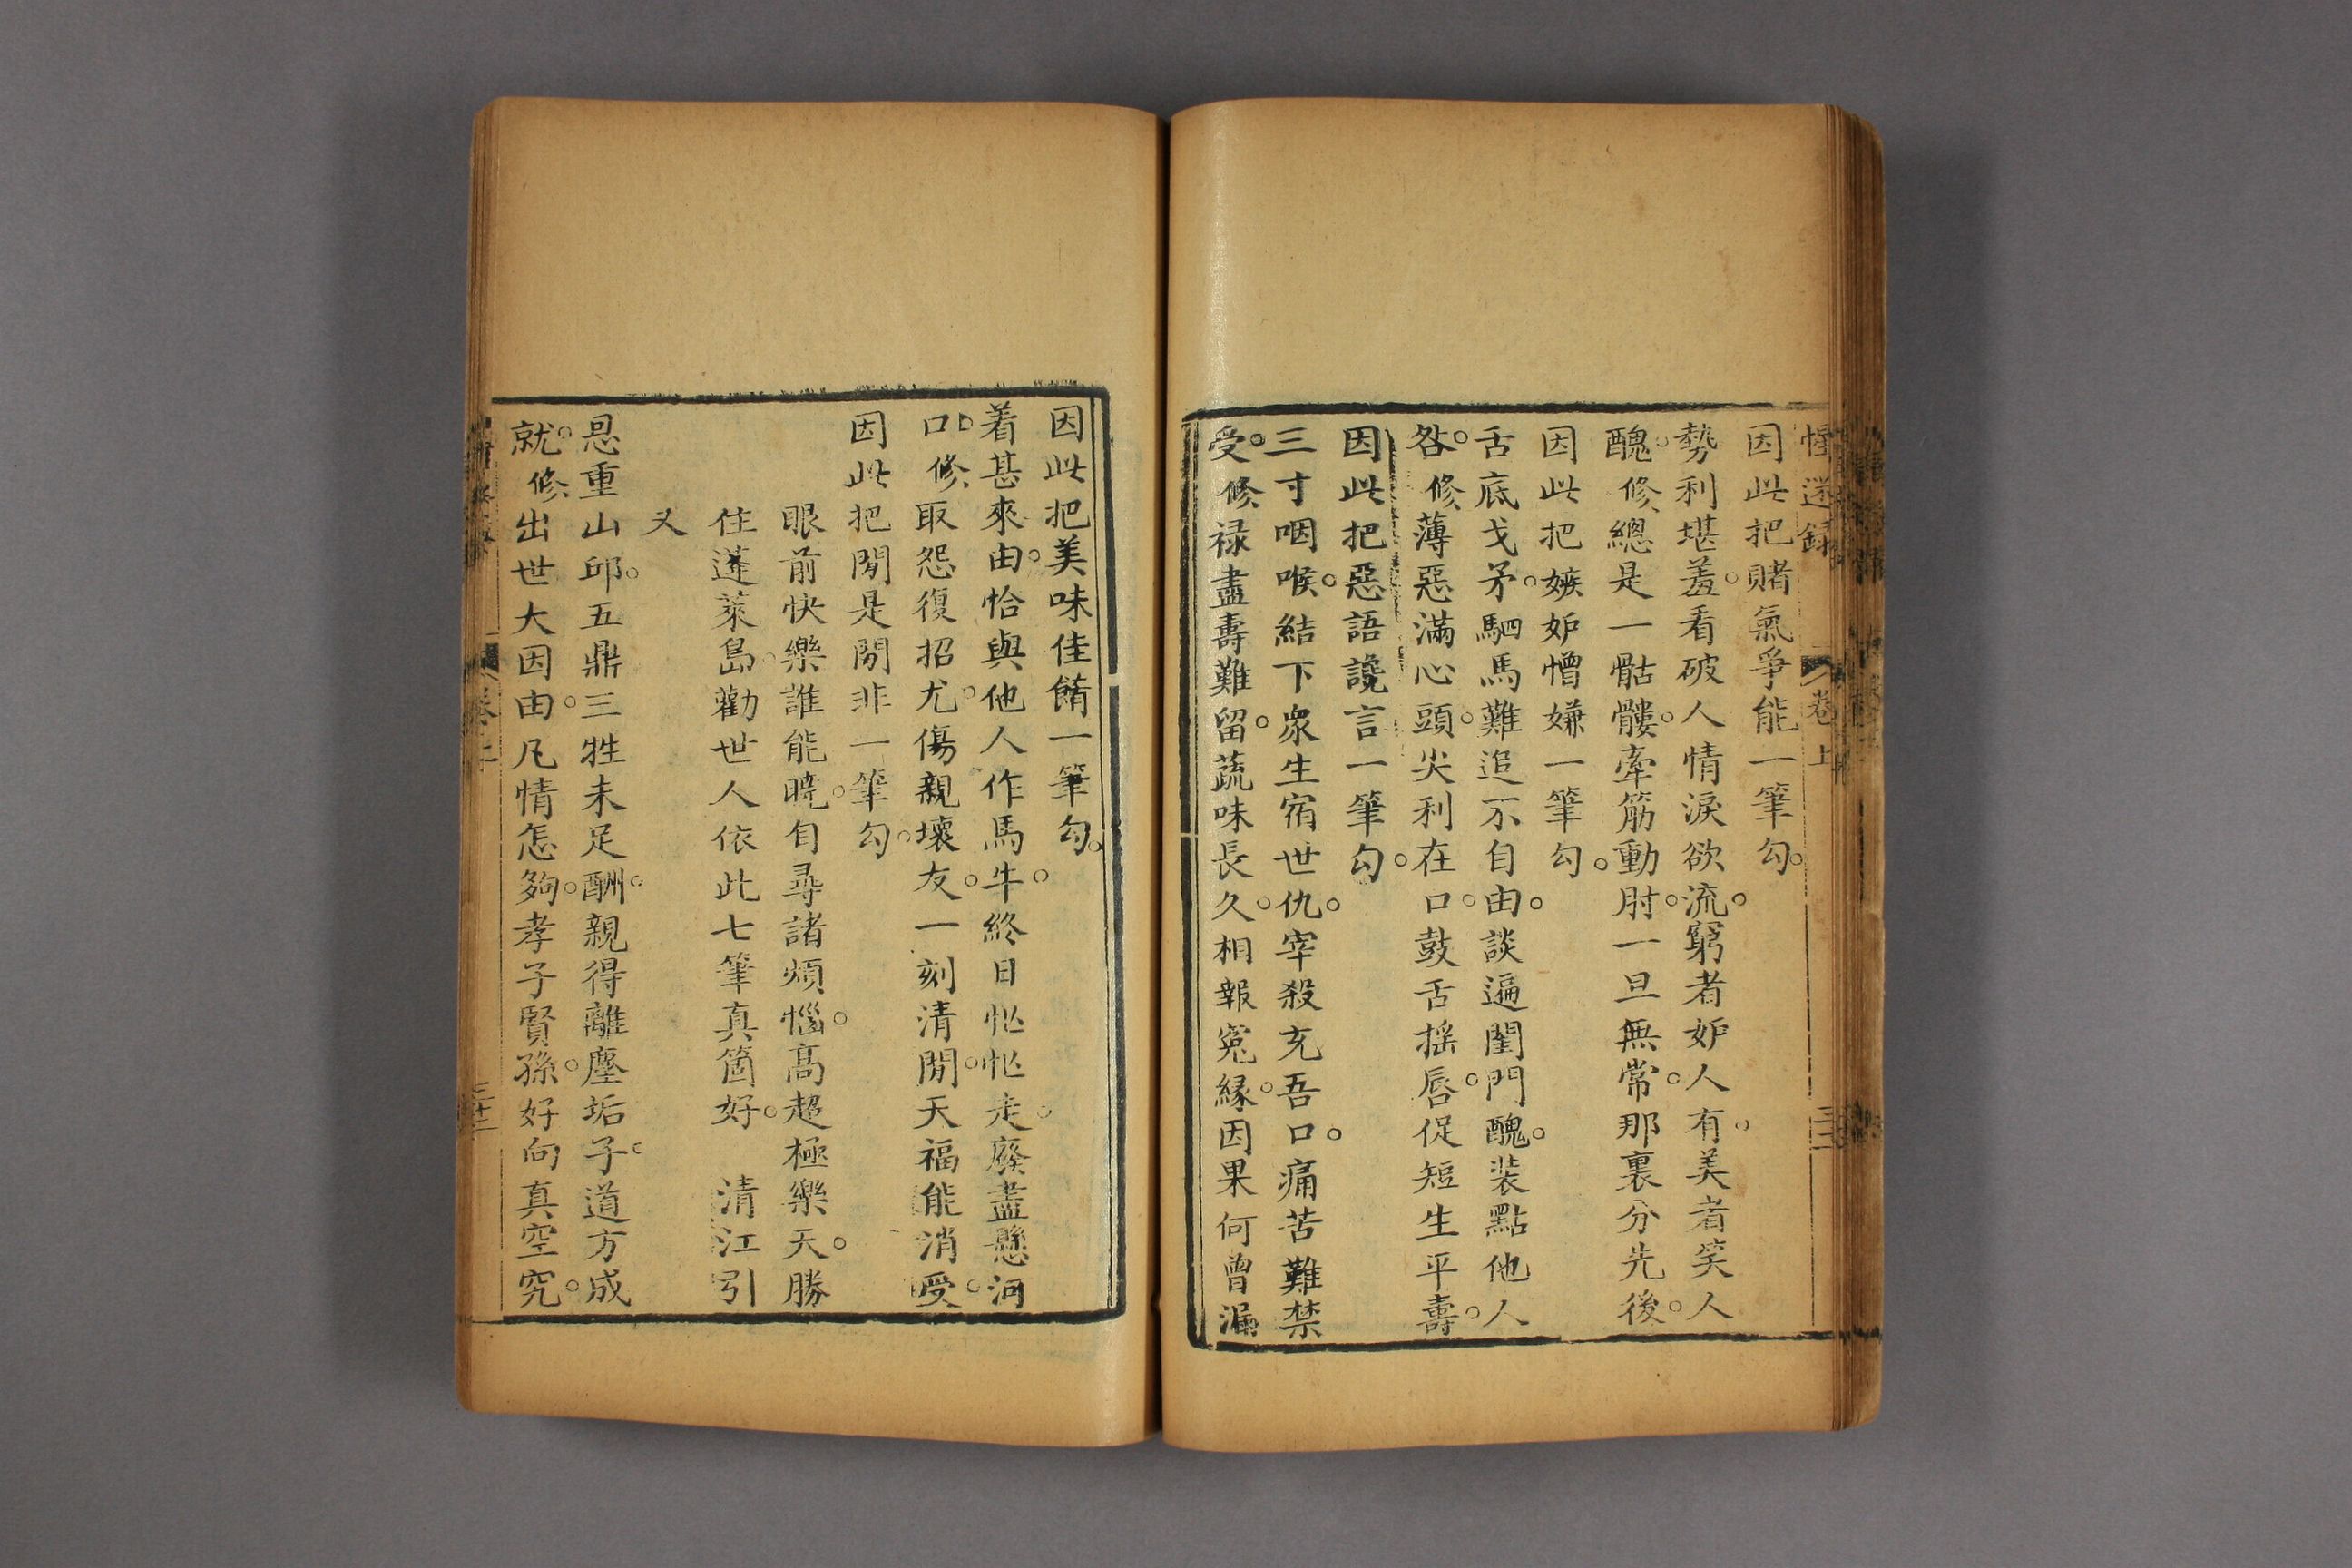 悟迷錄 卷上 三十二
因此把賭氣爭能一筆勾。
勢利堪羞。看破人情淚欲流。窮者妒人有。美者笑人
醜。修總是一骷髏。牽筋動肘。一旦無常。那裏分先後。
因此把嫉妒憎嫌一筆勾。
舌底戈矛。駟馬難追不自由。談遍閨門醜。裝點他人
咎。修薄惡滿心頭。尖利在口。鼓舌搖唇。促短生平壽。
因此把惡語讒言一筆勾。
三寸咽喉。結下衆生宿世仇。宰殺充吾口。痛苦難禁
受。修禄盡壽難留。蔬味長久。相報寃緣。因果何曾漏
因此把美味佳餚一筆勾。
着甚來由。恰與他人作馬牛。終日忙忙走。廢盡懸河
口。修取怨復招尤。傷親壞友。一刻清閒。天福能消受。
因此把閒是閒非一筆勾。
眼前快樂誰能曉。自尋諸煩惱。高超極樂天。勝
住蓬萊島。勸世人依此七筆真箇好。 清江引
又
恩重山邱。五鼎三牲未足酬。親得離塵垢。子道方成
就。修出世大因由。凡情怎夠。孝子賢孫。好向真空究。